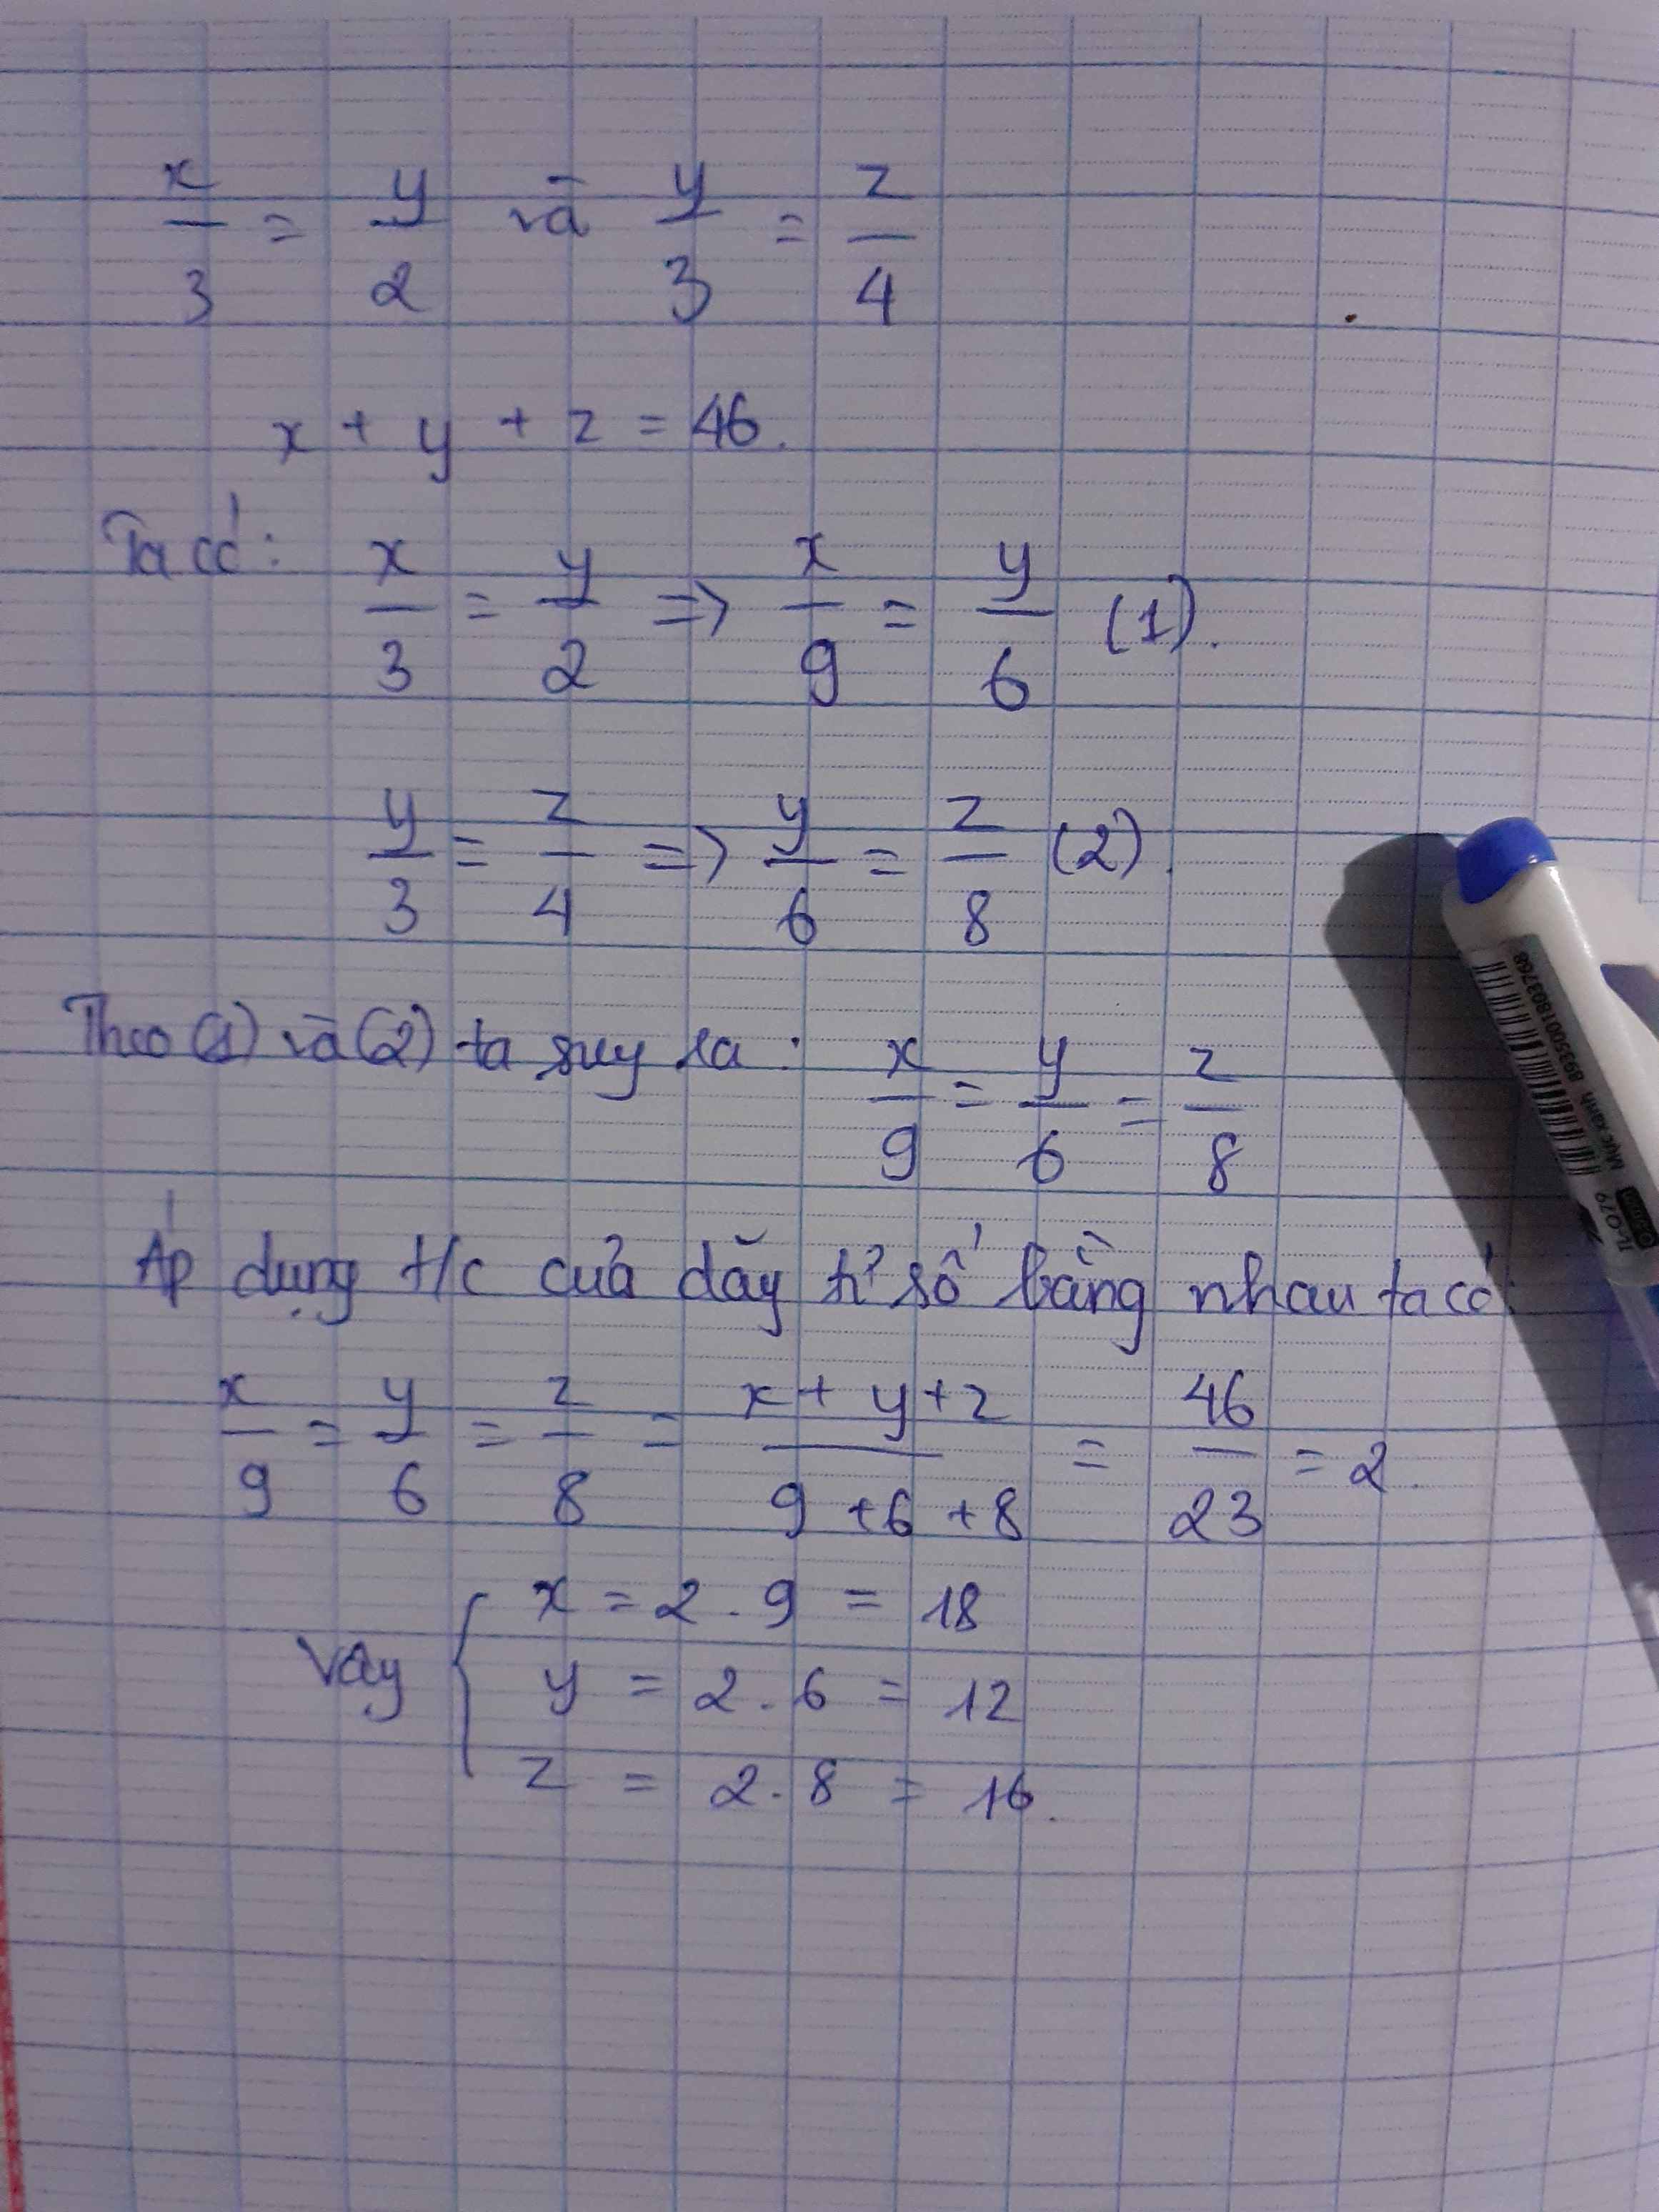 x/3 = y/2 và y/3 = z/4
x + y + z = 46.
Ta có: x/3 = y/2 => x/9 = y/6 (1).
y/3 = z/4 => y/6 = z/8 (2).
Theo (1) và (2) ta suy ra: x/9 = y/6 = z/8
Áp dụng t/c của dãy tỉ số bằng nhau ta có:
x/9 = y/6 = z/8 = x + y + z / 9 + 6 + 8 = 46/23 = 2.
Vậy { x = 2 . 9 = 18
y = 2 . 6 = 12
z = 2 . 8 = 16.
8935001803768
Mực xanh
TL-079